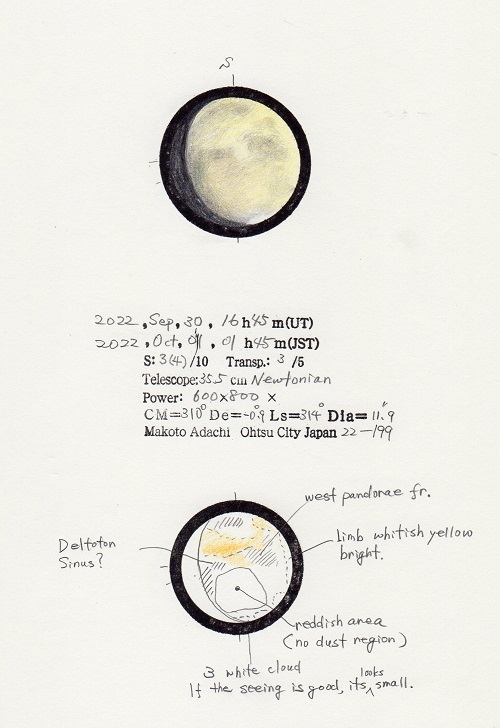 S
2022, Sep, 30, 16h45m(UT)
2022, Oct, 01, 01h45m(JST)
S: 3(4)/10 Transp.: 3 /5
Telescope: 35.5 cm Newtonian
Power: 600x800 ×
CM=310° De=-0.°9 Ls=314° Dia= 11."9
Makoto Adachi Ohtsu City Japan 22-199
west pandorae fr.
Deltoton
Sinus?
Limb whitish yellow
bright.
reddish area
(no dust region)
3 white cloud
If the seeing is good, its looks small.